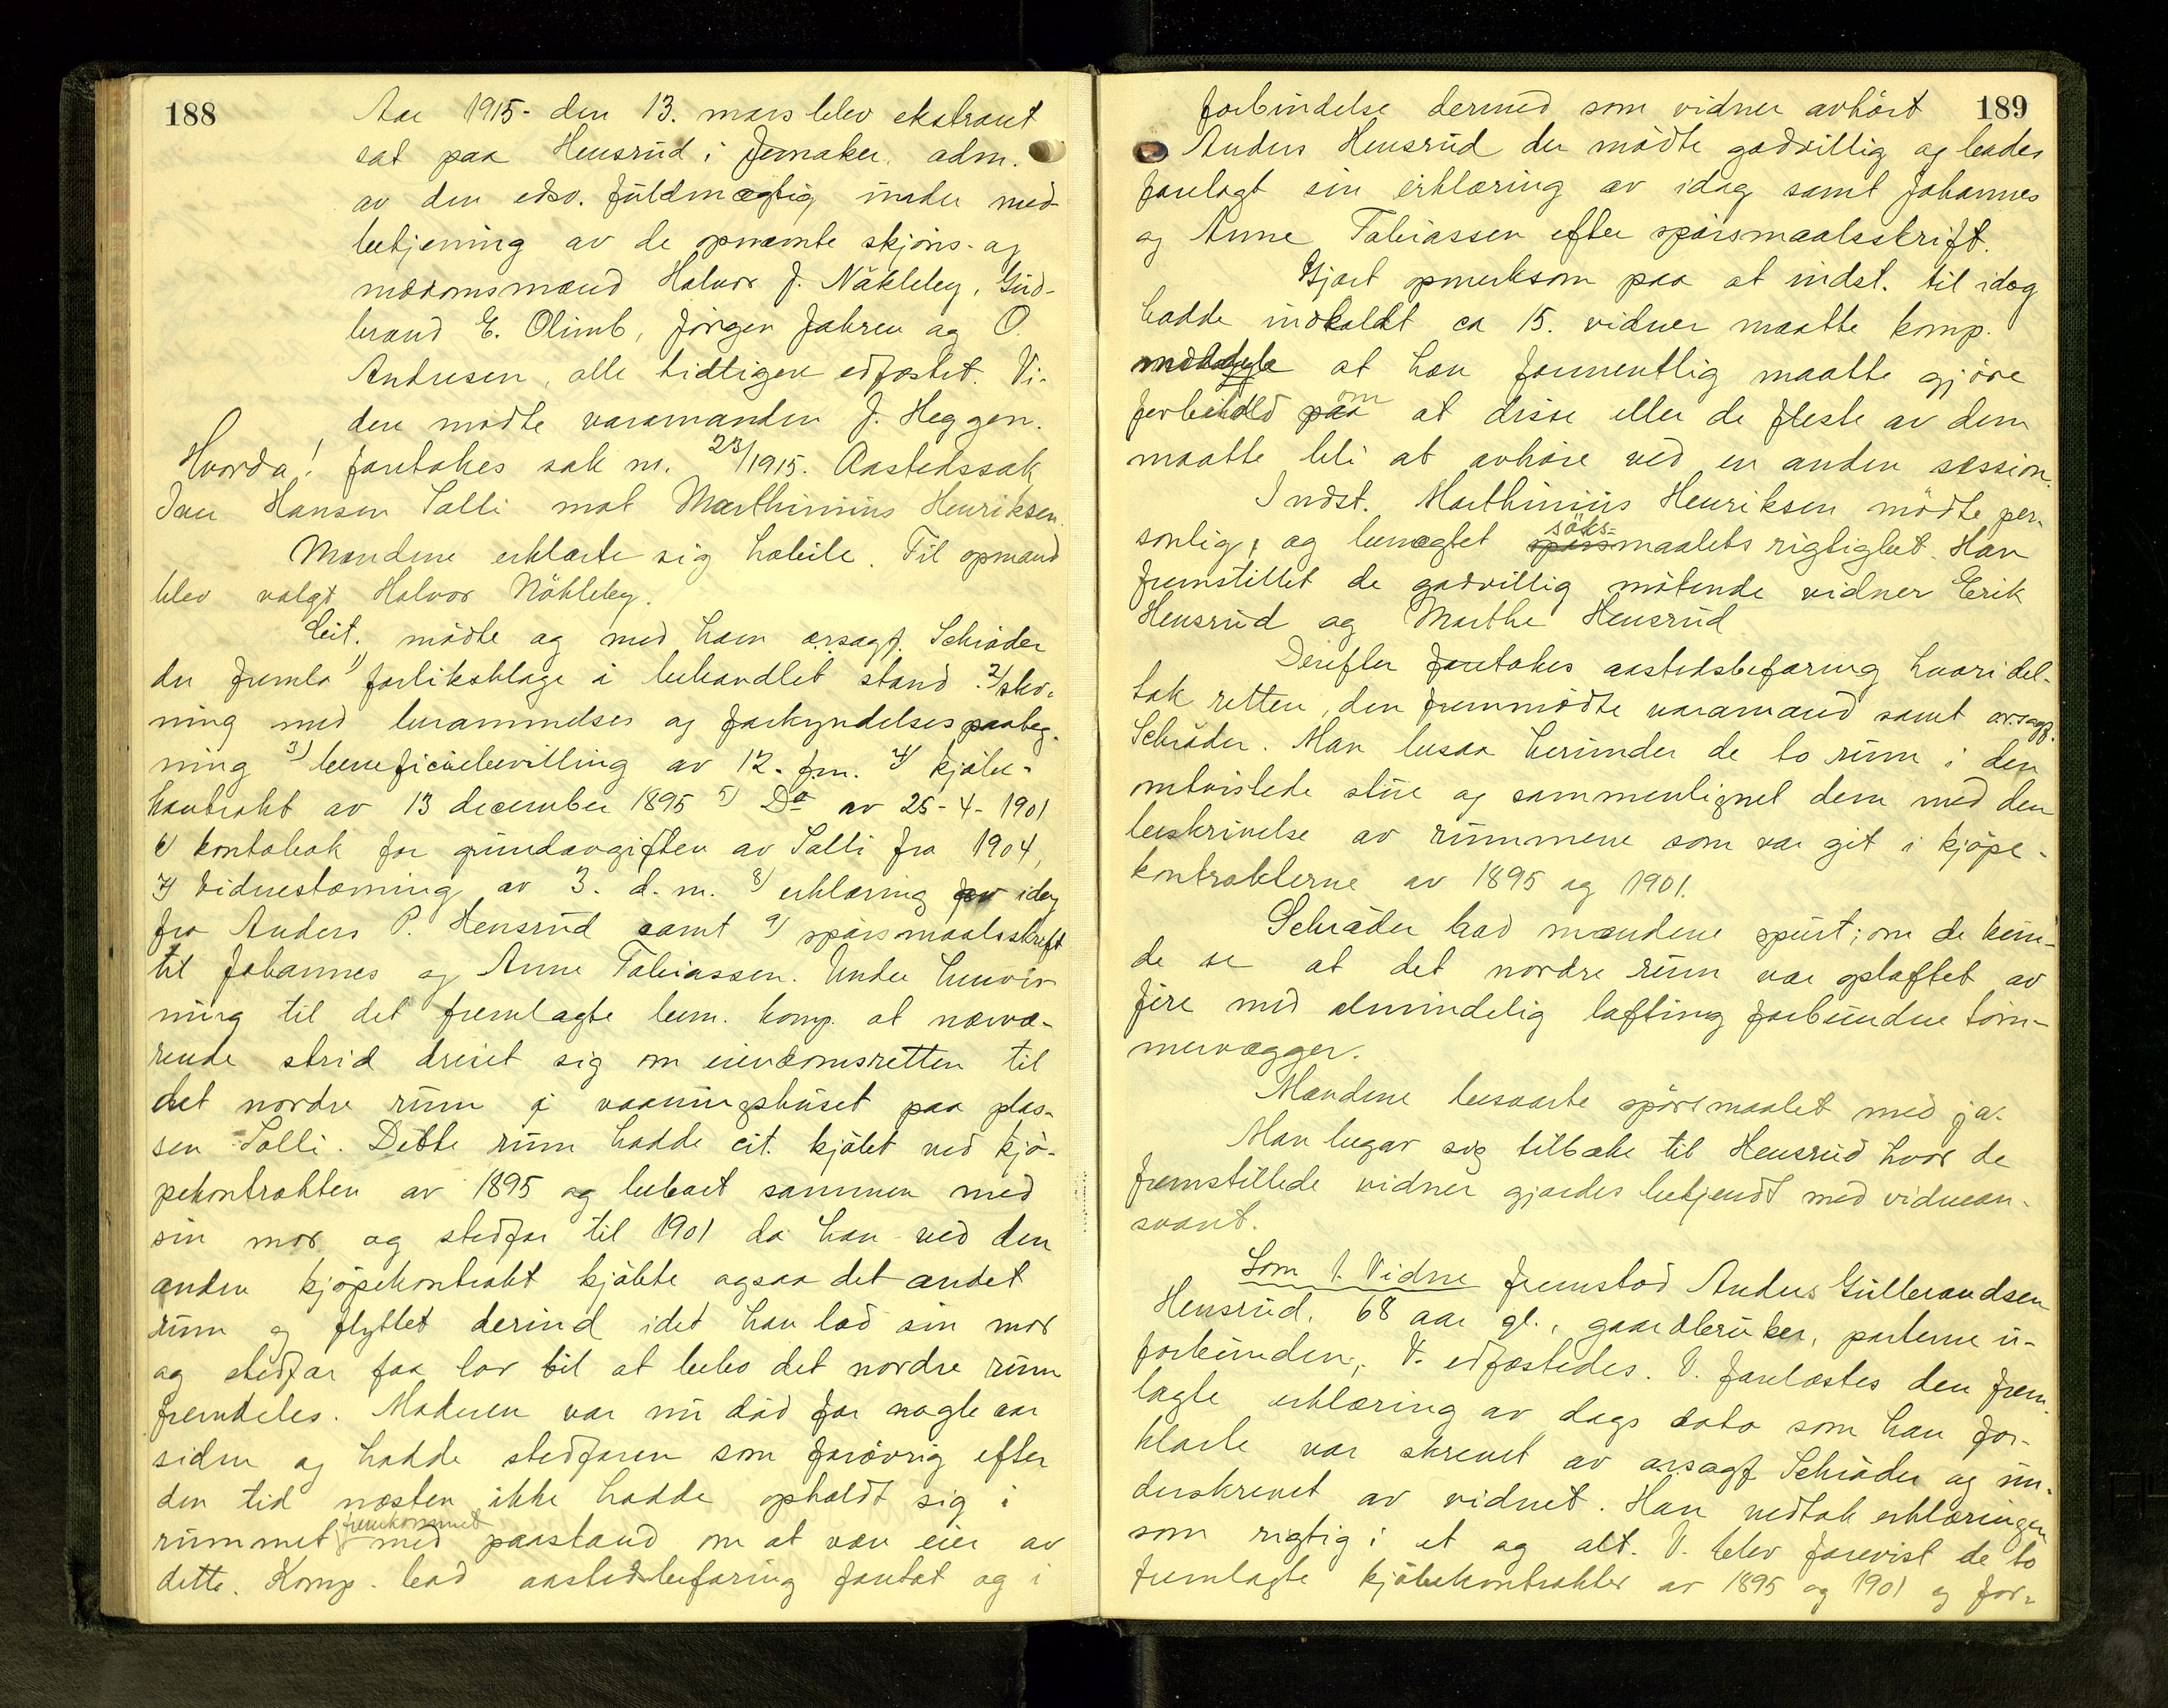 188
Aar 1915 - den 13. mars blev ekstraret
sat paa Hensrud i Jevnaker. adm.
av den edsv. fuldmægtig under med-
betjening av de opnævnte skjöns- og
mædomsmænd Halvor J. Näkleby, Gud-
brand E. Olimb, Jörgen Jahren og O.
Andresen, alle tidligere edfæstet. Vi-
dere mödte varamanden J. Heggen.
Hvorda! foretokes sak nr. 23/1915. Aastedssak
Iver Hansen Solli mot Marthinius Henriksen.
Mændene erklærte sig habile. Til opmand
blev valgt Halvor Näkleby.
Cit. mödte og med ham o.r.sagf. Schröder
der fremla 1) forliksklage i behandlet stand. 2) stev-
ning med berammelses og forkyndelsespaateg-
ning 3) beneficiebevilling av 12. f.m. 4) kjöbe-
kontrakt av 13 december 1895 5) Do av 25-4-1901
6) kontobok for grundavgiften av Solli fra 1904,
7) Vidnestævning av 3. d.m. 8) erklæring av idag
fra Anders P. Hensrud samt 9) spörsmaalsskrift
til Johannes og Anne Tobiassen. Under henvis-
ning til det fremlagte bem. komp. at nærvæ-
rende strid dreiet sig om eiendomsretten til
det nordre rum i vaaningshuset paa plas-
sen Solli. Dette rum hadde cit. kjöbt ved kjö-
pekontrakten av 1895 og bebodt sammen med
sin mor og stedfar til 1901 da han ved den
anden kjöpekontrakt kjöbte ogsaa det andet
rum og flyttet derind idet han lod sin mor
og stedfar faa lov til at bebo det nordre rum
fremdeles. Moderen var nu död for nogle aar
siden og hadde stedfaren som forövrig efter
den tid næsten ikke hadde opholdt sig i
rummet fremkommet med paastand om at være eier av
dette. Komp. bad aastedsbefaring foretat og i
189
forbindelse dermed som vidner avhört
Anders Hensrud der mödte godvillig og bades
forelagt sin erklæring av idag samt Johannes
og Anne Tobiassen efter spörsmaalsskrift.
Gjort opmerksom paa at indst. til idag
hadde indkaldt ca 15. vidner maatte komp.
at han formentlig maatte gjöre
forbehold om at disse eller de fleste av dem
maatte bli at avhöre ved en anden session.
Indst. Marthinius Henriksen mödte per-
sonlig, og benegtet söks-maalets rigtighet. Han
fremstillet de godvillig mötende vidner Erik
Hensrud og Marthe Hensrud
Derefter foretokes aastedsbefaring hvori del-
tok retten, den fremmödte varamand samt o.r.sagf.
Schröder. Man besaa herunder de to rum i den
omtvistede stue og sammenlignet dem med den
beskrivelse av rummene som var git i kjöpe-
kontrakterne av 1895 og 1901.
Schröder bad mændene spurt; om de kun-
de se at det nordre rum var oplaftet av
fire med almindelig lafting forbundne töm-
mervægger.
Mændene besvarte spörsmaalet med ja.
Man begav sig tilbake til Hensrud hvor de
fremstillede vidner gjordes bekjendt med vidnean-
svaret.
Som 1. Vidne fremstod Anders Gulbrandsen
Hensrud. 68 aar gl., gaardbruker, parterne u-
forbunden. V. edfæstedes. V. forelæstes den frem-
lagte erklæring av dags dato som han for-
klarte var skrevet av o.r.sagf. Schröder og un-
derskrevet av vidnet. Han vedtok erklæringen
som rigtig i et og alt. V. blev forevist de to
fremlagte kjöbekontrakter av 1895 og 1901 og for-